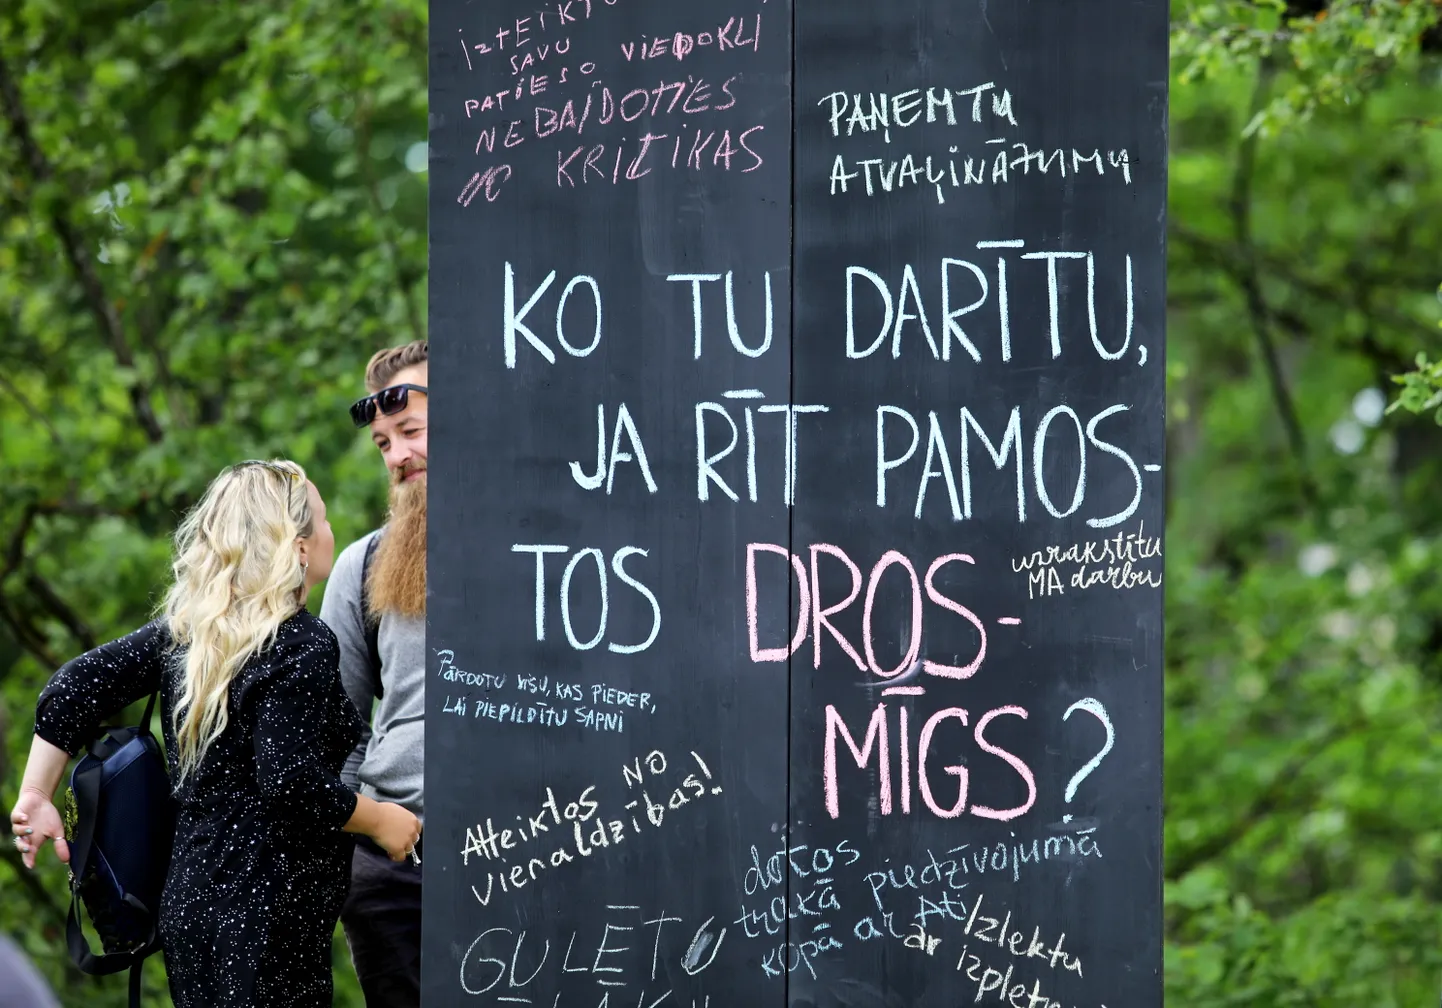 IZTEIKTU
SAVU
PATIESO VIEDOKLI
NEBAIDOTIES
NO KRITIKAS
PAŅEMTU
ATVAĻINĀJUMU
KO TU DARĪTU,
JA RĪT PAMOS-
TOS DROS-
MĪGS?
uzrakstītu
MA darbu
PĀRDOTU VISU, KAS PIEDER,
LAI PIEPILDĪTU SAPNI
Atteiktos NO
vienaldzības!
dotos
trakā piedzīvojumā
kopā ar
Izlektu
ar izpletni
GULĒTU